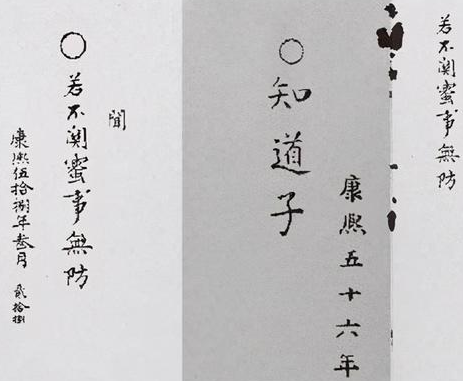 若不関蜜事無防
康熙五十六年
○知道子
聞
○若不関蜜事無防
康熙伍拾捌年叁月 貳拾捌